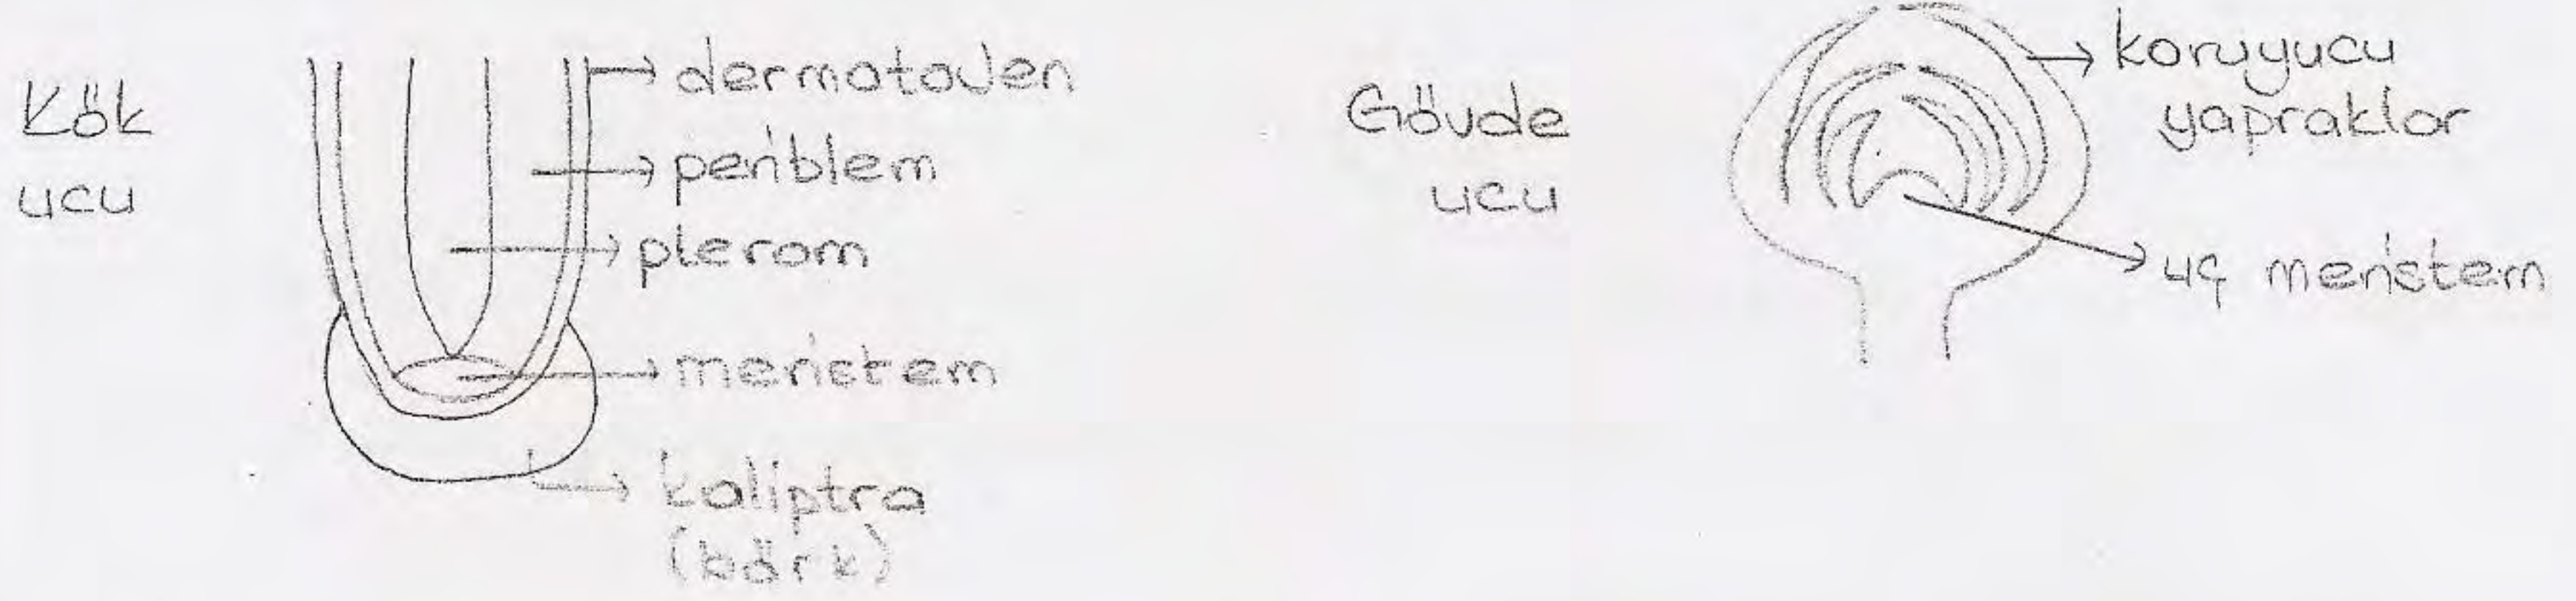 Kök
ucu
dermatojen
periblem
plerom
meristem
kaliptra
(börk)
Gövde
ucu
koruyucu
yapraklar
uç meristem